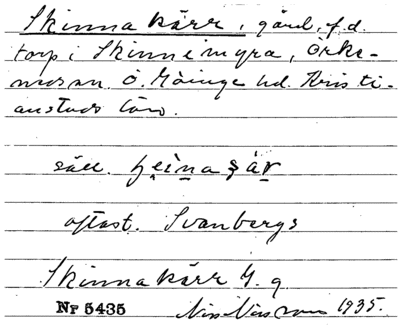 Skinnakärr, gård, f.d.
torp i Skinnemyra, Örke-
neds sn. Ö. Göinge hd. Kristi-
anstads län.
säll.
oftast. Svanbergs
Skinnakärr G. g
Nr 5435 Nils Nilsson 1935.